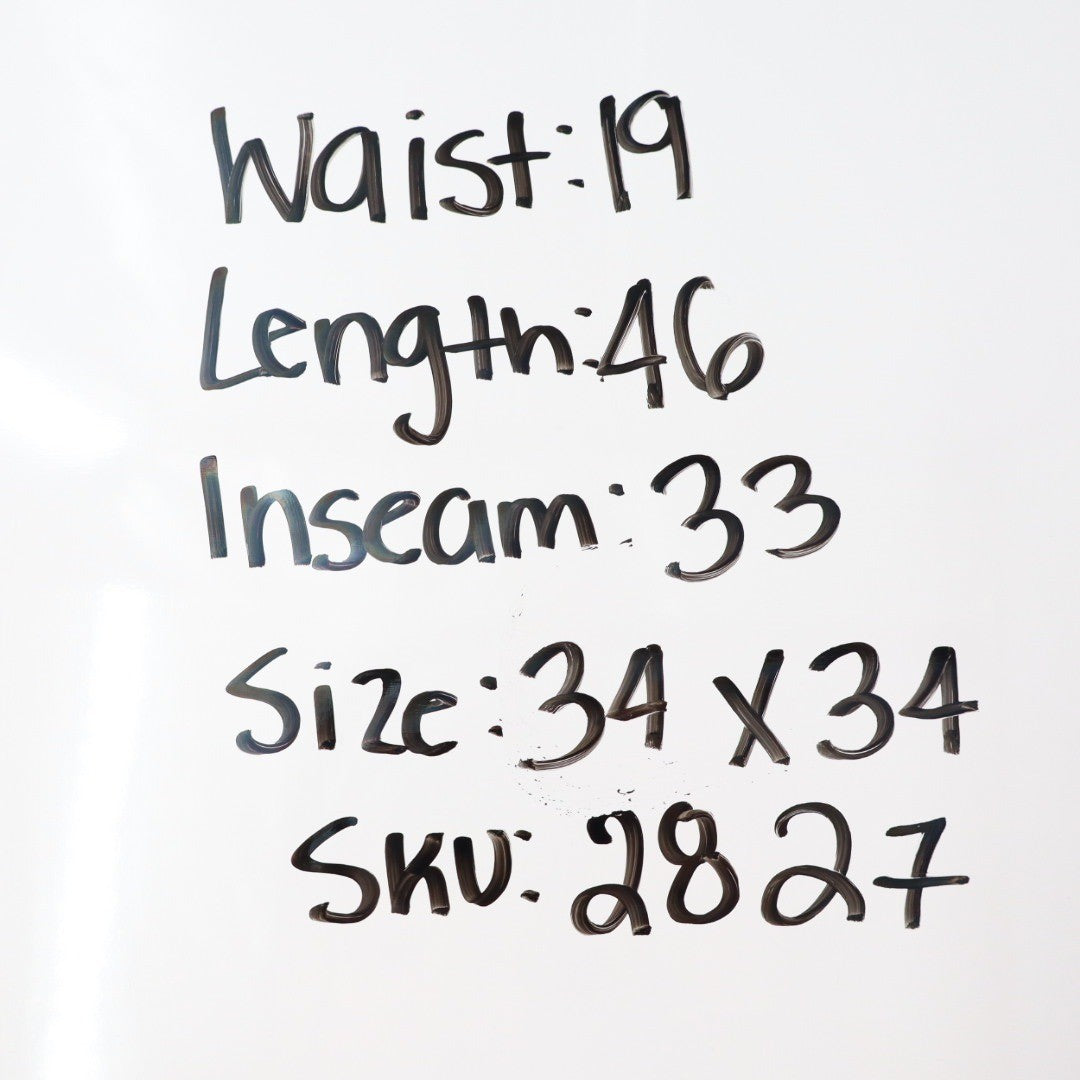 Waist: 19
Length: 46
Inseam: 33
Size: 34 x 34
Sku: 2827